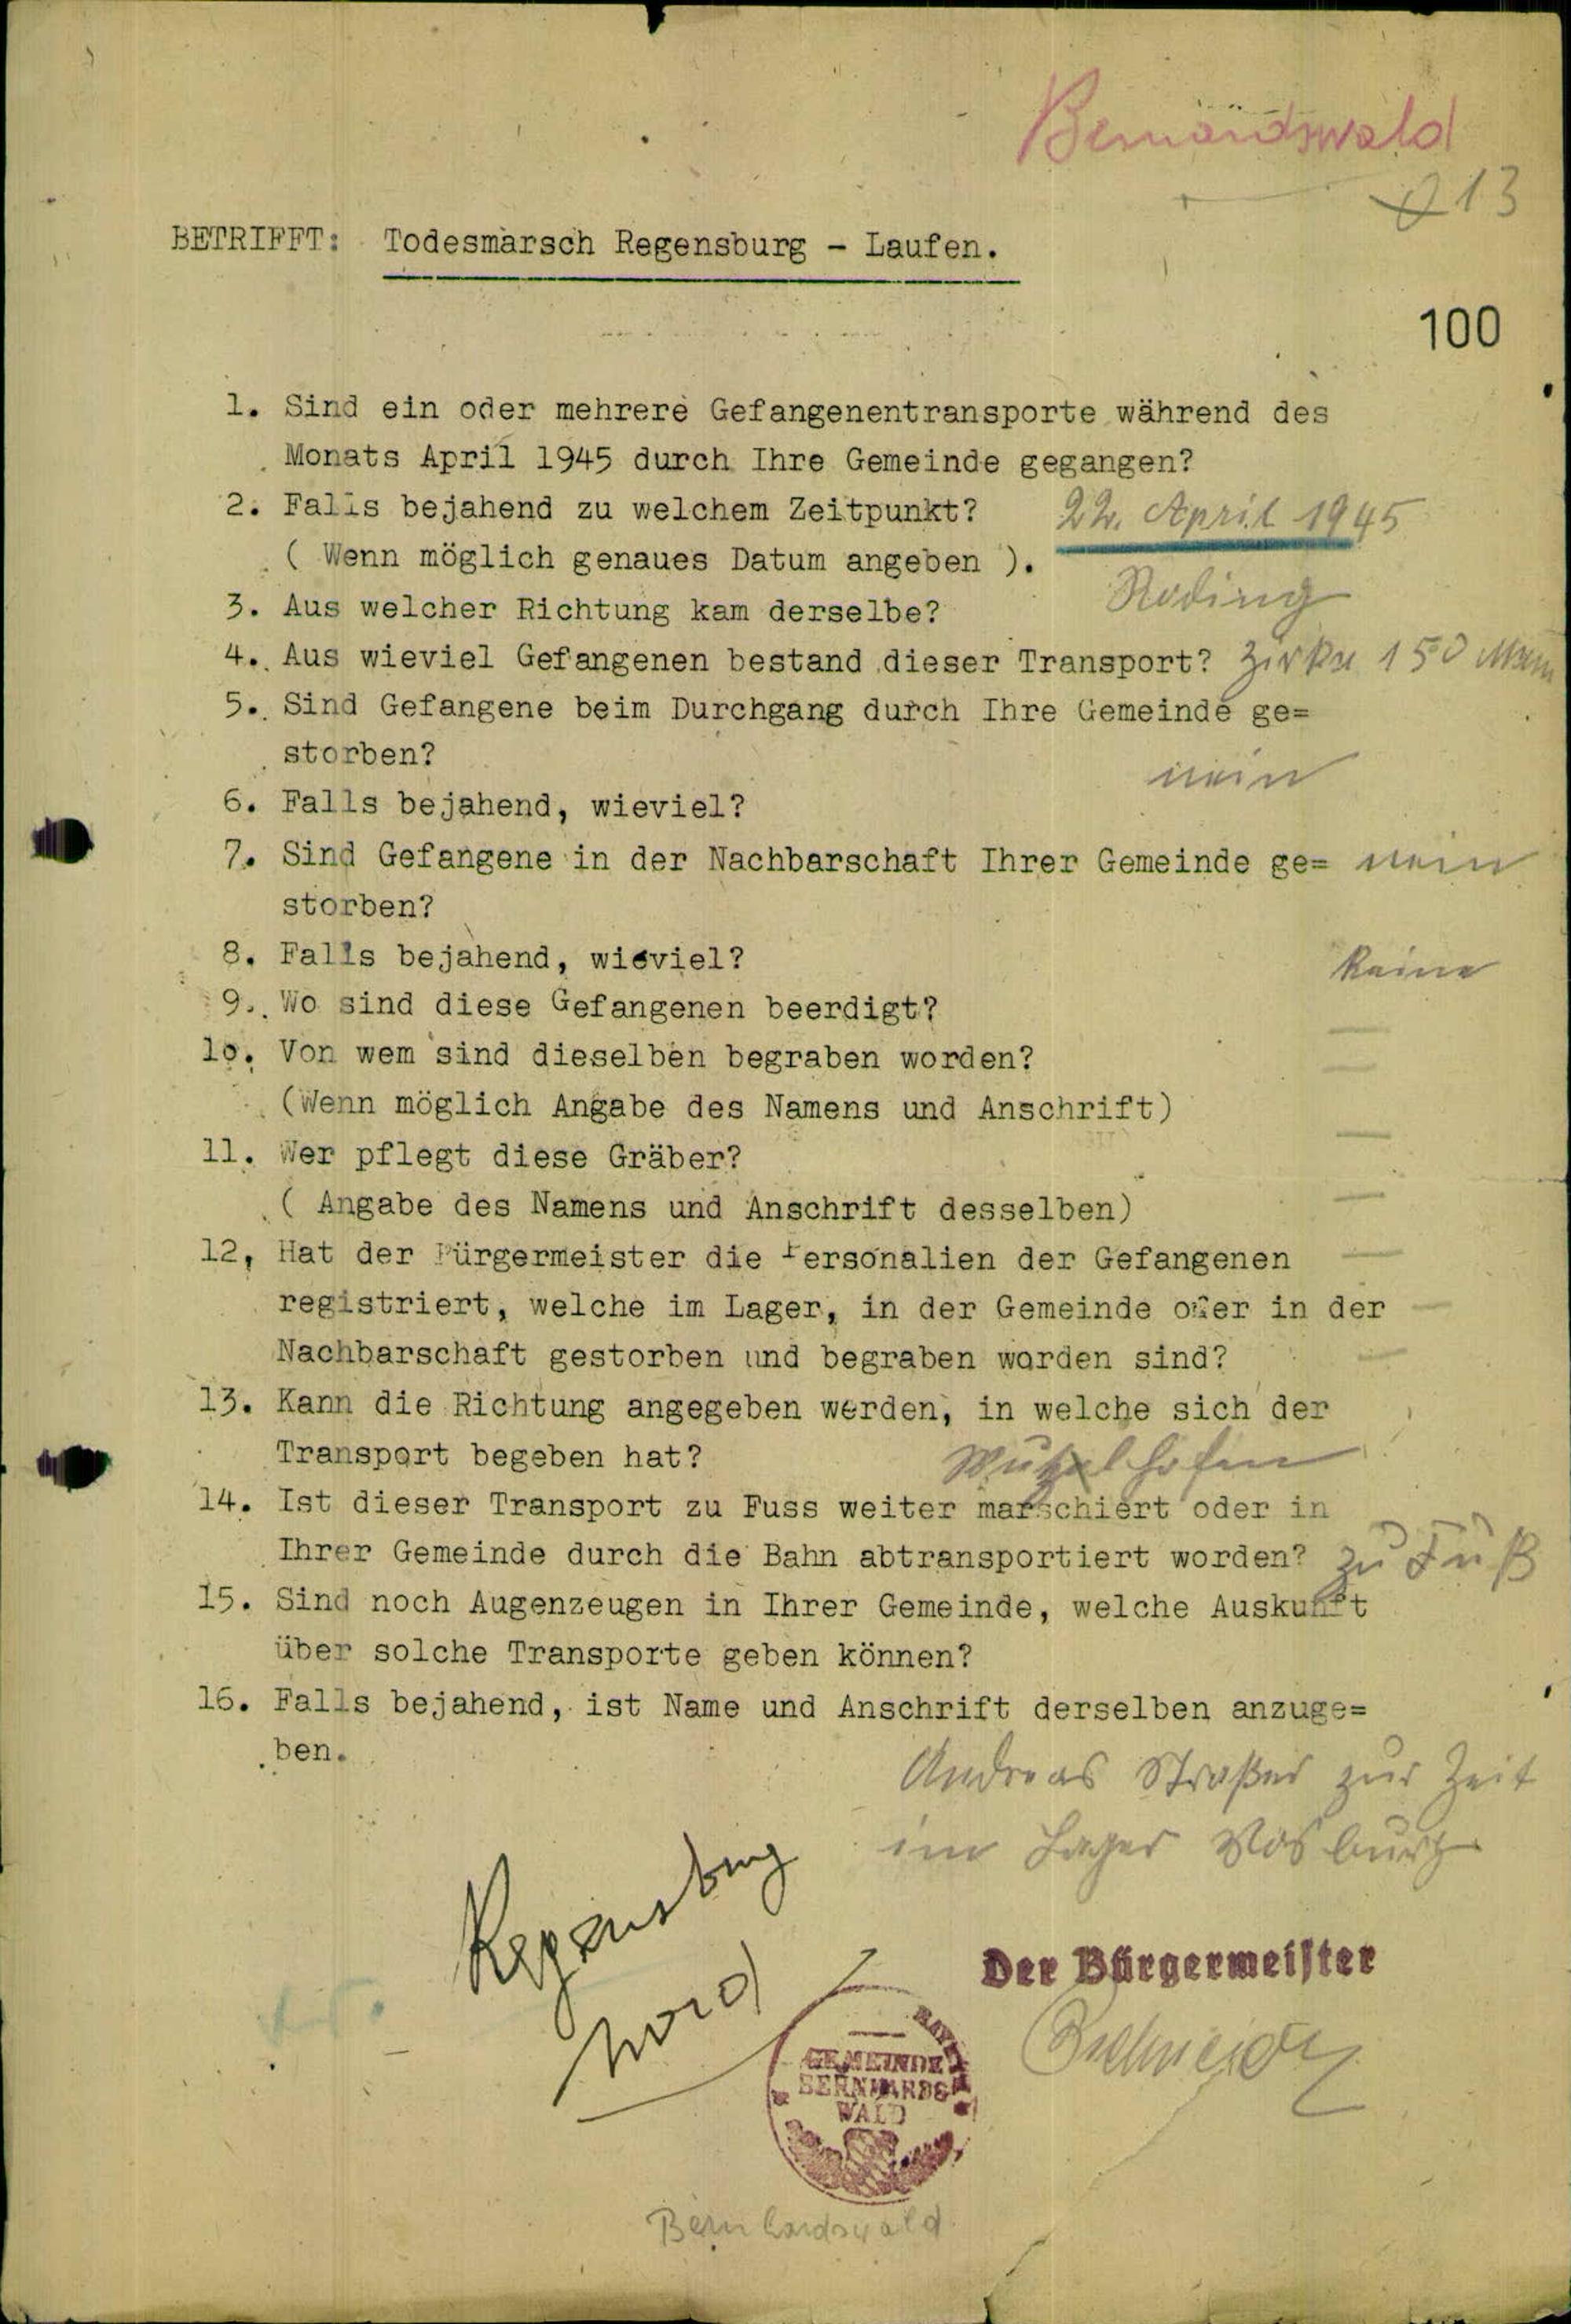 Bernardswald
13
BETRIFFT: Todesmarsch Regensburg - Laufen.
100
1. Sind ein oder mehrere Gefangenentransporte während des
Monats April 1945 durch Ihre Gemeinde gegangen?
2. Falls bejahend zu welchem Zeitpunkt? 22. April 1945
( Wenn möglich genaues Datum angeben ).
3. Aus welcher Richtung kam derselbe? Roding
4. Aus wieviel Gefangenen bestand dieser Transport? Zirka 150 Mann
5. Sind Gefangene beim Durchgang durch Ihre Gemeinde ge=
storben? nein
6. Falls bejahend, wieviel?
7. Sind Gefangene in der Nachbarschaft Ihrer Gemeinde ge= nein
storben?
8. Falls bejahend, wieviel? Keine
9. Wo sind diese Gefangenen beerdigt? —
10. Von wem sind dieselben begraben worden? —
(Wenn möglich Angabe des Namens und Anschrift)
11. Wer pflegt diese Gräber? —
( Angabe des Namens und Anschrift desselben) —
12, Hat der Bürgermeister die Personalien der Gefangenen —
registriert, welche im Lager, in der Gemeinde oder in der —
Nachbarschaft gestorben und begraben worden sind? —
13. Kann die Richtung angegeben werden, in welche sich der
Transport begeben hat? Wutzelhofen
14. Ist dieser Transport zu Fuss weiter marschiert oder in
Ihrer Gemeinde durch die Bahn abtransportiert worden? zu Fuß
15. Sind noch Augenzeugen in Ihrer Gemeinde, welche Auskunft
über solche Transporte geben können?
16. Falls bejahend, ist Name und Anschrift derselben anzuge=
ben.
Andreas Straßer zur Zeit
im Lager Mosburg
Regensburg
Nord
Der Bürgermeister
GEMEINDE
BERNHARDS
WALD
Bernhardswald